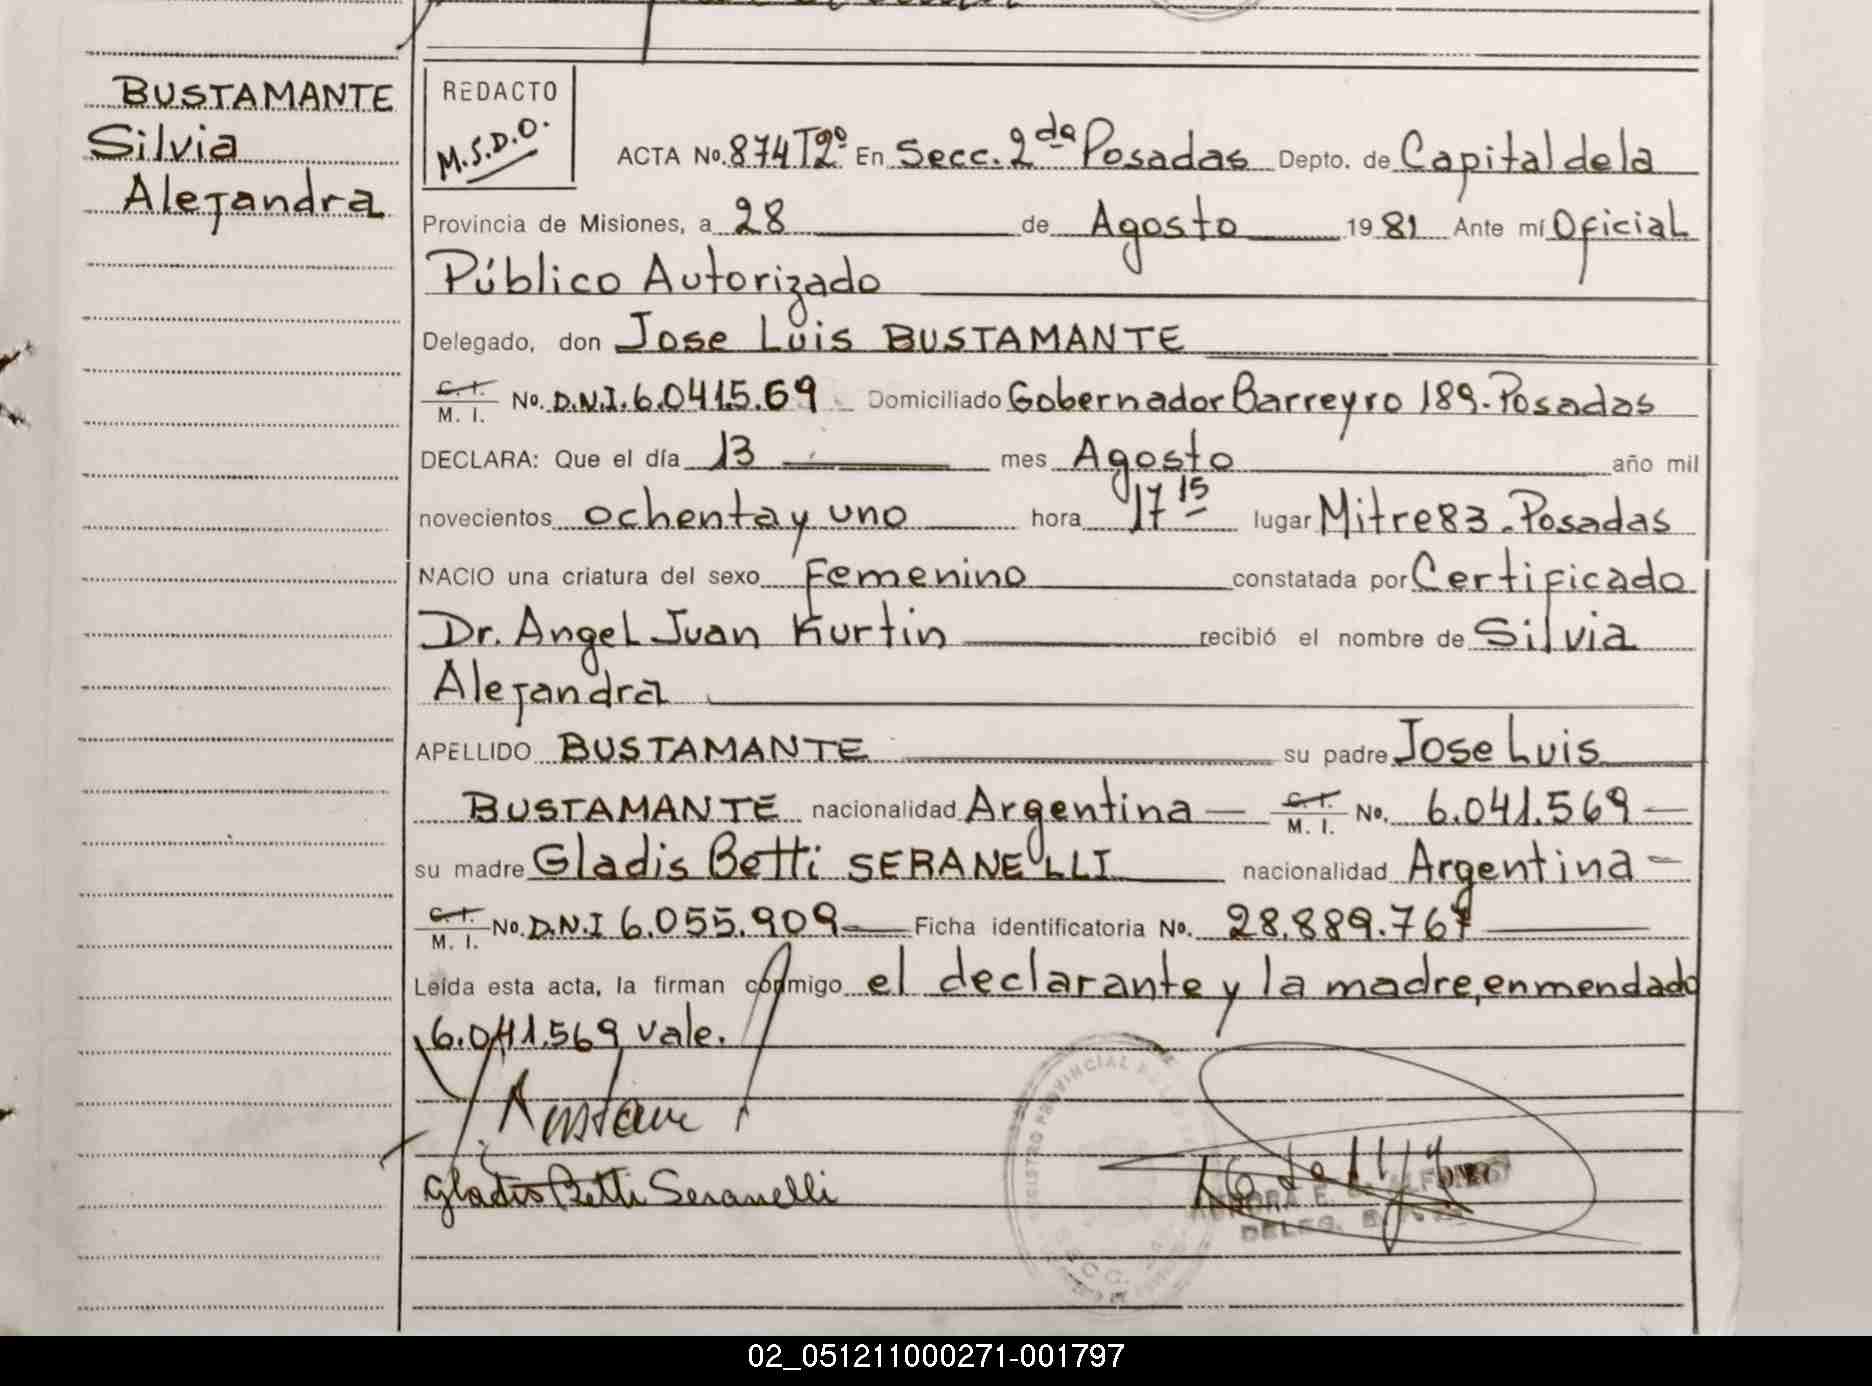 BUSTAMANTE
Silvia
Alejandra
REDACTO
M.S.D.O.
ACTA No. 874 T2º En Secc. 2da Posadas Depto. de Capital de la
Provincia de Misiones, a 28 de Agosto 1981 Ante mí Oficial
Público Autorizado
Delegado, don Jose Luis BUSTAMANTE
C. I.
M. I. No. D.N.I. 6.041.569 Domiciliado Gobernador Barreyro 189.-Posadas
DECLARA: Que el día 13 mes Agosto año mil
novecientos ochenta y uno hora 17 15 lugar Mitre 83.-Posadas
NACIO una criatura del sexo Femenino constatada por Certificado
Dr. Angel Juan Kurtin recibió el nombre de Silvia
Alejandra
APELLIDO BUSTAMANTE su padre Jose Luis
BUSTAMANTE nacionalidad Argentina C. I.
M. I. No. 6.041.569
su madre Gladis Betti SERANELLI nacionalidad Argentina
C. I.
M. I. No. D.N.I 6.055.909 Ficha identificatoria No. 28.889.767
Leída esta acta, la firman conmigo el declarante y la madre, enmendado
6.041.569 vale.
Gladis Betti Seranelli
REGISTRO PROVINCIAL DE LAS
DELEG.
02_051211000271-001797